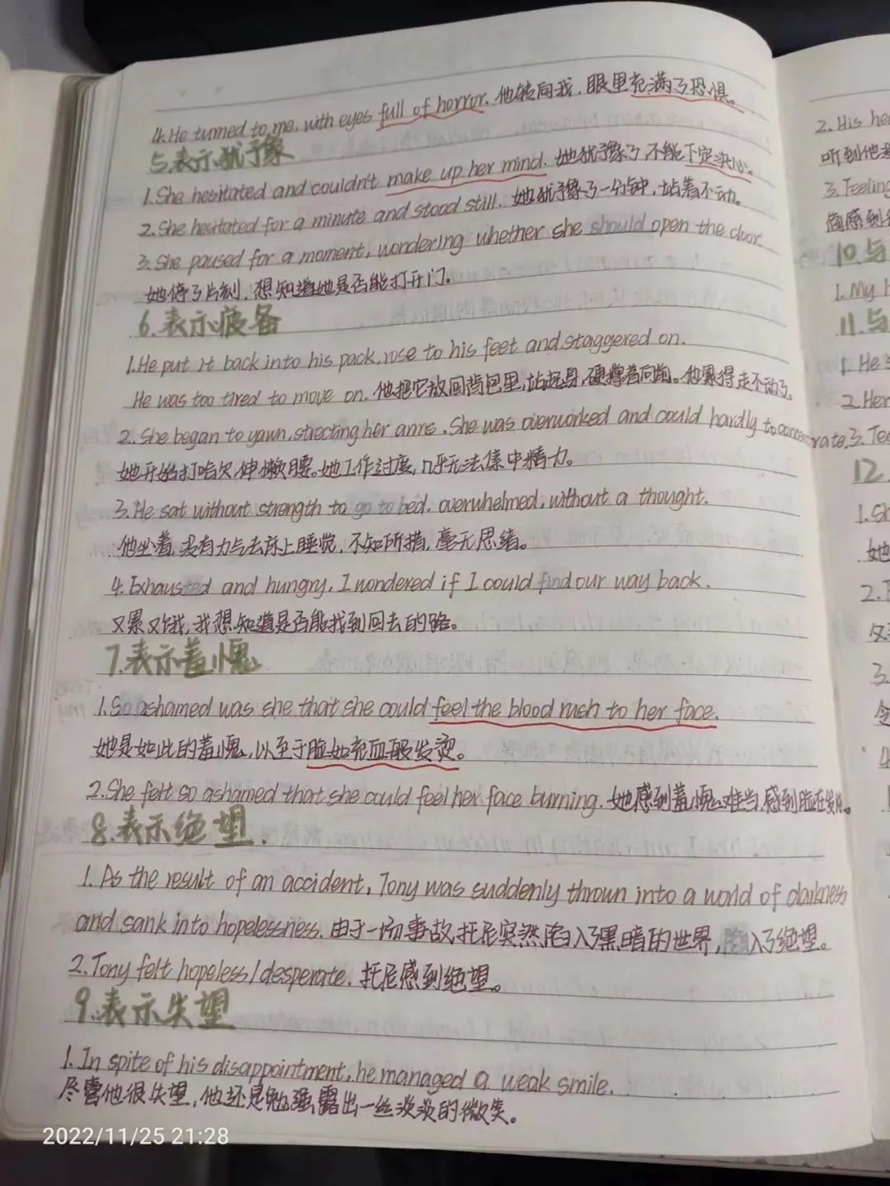 4. He turned to me, with eyes full of horror. 他转向我，眼里充满了恐惧。
5.表示犹豫
1. She hesitated and couldn't make up her mind. 她犹豫了不能下定决心。
2. She hesitated for a minute and stood still. 她犹豫了一分钟，站着不动。
3. She paused for a moment, wondering whether she should open the door.
她停了片刻，想知道她是否能打开门。
6.表示疲备
1. He put it back into his pack, rose to his feet and staggered on.
He was too tired to move on. 他把它放回背包里，站起身，硬撑着向前。他累得走不动了。
2. She began to yawn, strecting her arms. She was overworked and could hardly to concentrate
她开始打哈欠伸懒腰。她工作过度，几乎无法集中精力。
3. He sat without strength to go to bed, overwhelmed, without a thought.
他坐着，没有力气去床上睡觉，不知所措，毫无思绪。
4. Exhausted and hungry, I wondered if I could find our way back.
又累又饿，我想知道是否能找到回去的路。
7.表示羞愧
1. So ashamed was she that she could feel the blood rush to her face.
她是如此的羞愧，以至于脸如充血般发烫。
2. She felt so ashamed that she could feel her face burning. 她感到羞愧难当，感到脸在发
8.表示绝望.
1. As the result of an accident, Tony was suddenly thrown into a world of darkness
and sank into hopelessness. 由于一场事故，托尼突然陷入了黑暗的世界，陷入了绝望。
2. Tony felt hopeless/desperate. 托尼感到绝望。
9.表示失望
1. In spite of his disappointment, he managed a weak smile.
尽管他很失望，他还是勉强露出一丝淡淡的微笑。
2. His he
听到他
3. Feeling
10.与
1. My h
11.与
1. He s
2. Her
3. Tea
12.
1. Sh
她
2. T
3.
4.
2022/11/25 21:28